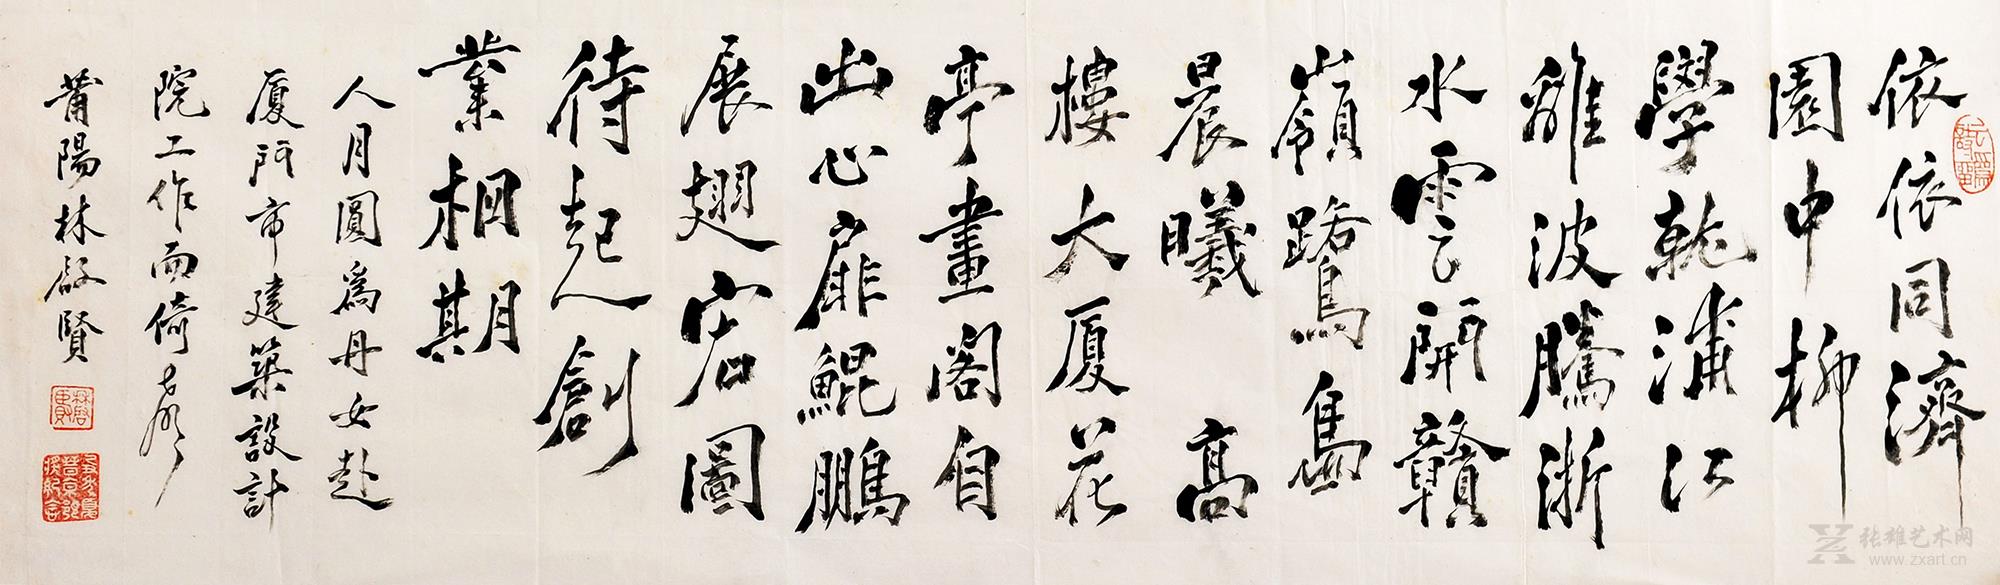 依依同濟
園中柳
學乾浦江
離波騰浙
水雲開贛
嶺路鳥島
晨曦 高
樓大厦花
亭畫閣自
出心扉鯤鵬
展翅宏圖
待起創
業相期
人月圓爲丹女赴
厦門市建築設計
院工作而倚聲
莆陽林啟賢
张雄艺术网
www.zxart.cn